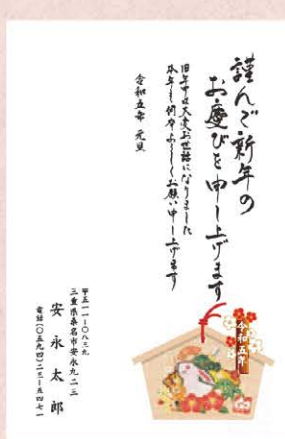 謹んで新年の
お慶びを申し上げます
旧年中は大変お世話になりました
本年も何卒よろしくお願い申し上げます
令和五年 元旦
令和五年
〒五一一-〇八三九
三重県桑名市安永九二三
安永太郎
電話(〇五九四)二三-五四七一